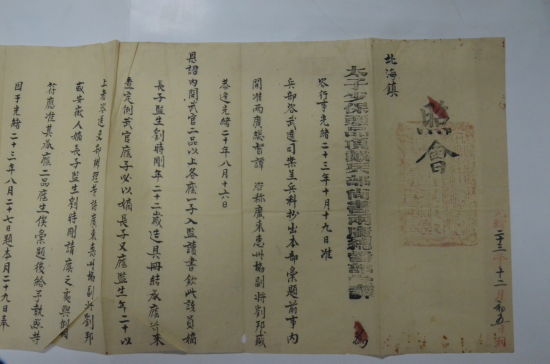 照會
北海鎮
太子少保頭品頂戴兵部尚書兩廣總督部堂譚 為
咨行事光緒二十三年十月十九日准
兵部咨武選司案呈兵科抄出本部彙題前事內
開准兩廣總督譚 咨稱廣東惠州協副將劉邦盛
恭逢光緒二十年八月十六日
恩詔內開武官二品以上各廕一子入監讀書欽此該員嫡
長子監生劉時剛年二十二歲造具冊結承廕前來
查定例武官廕子必以嫡長子又廕監生年二十以
上者
或安嫡人嫡長子監生劉時剛請廕之處與例
符應准其承廕二品廕生俟彙題後給予執照等
因于光緒二十三年八月二十七日題本月二十九日奉
二十三 十二 初五